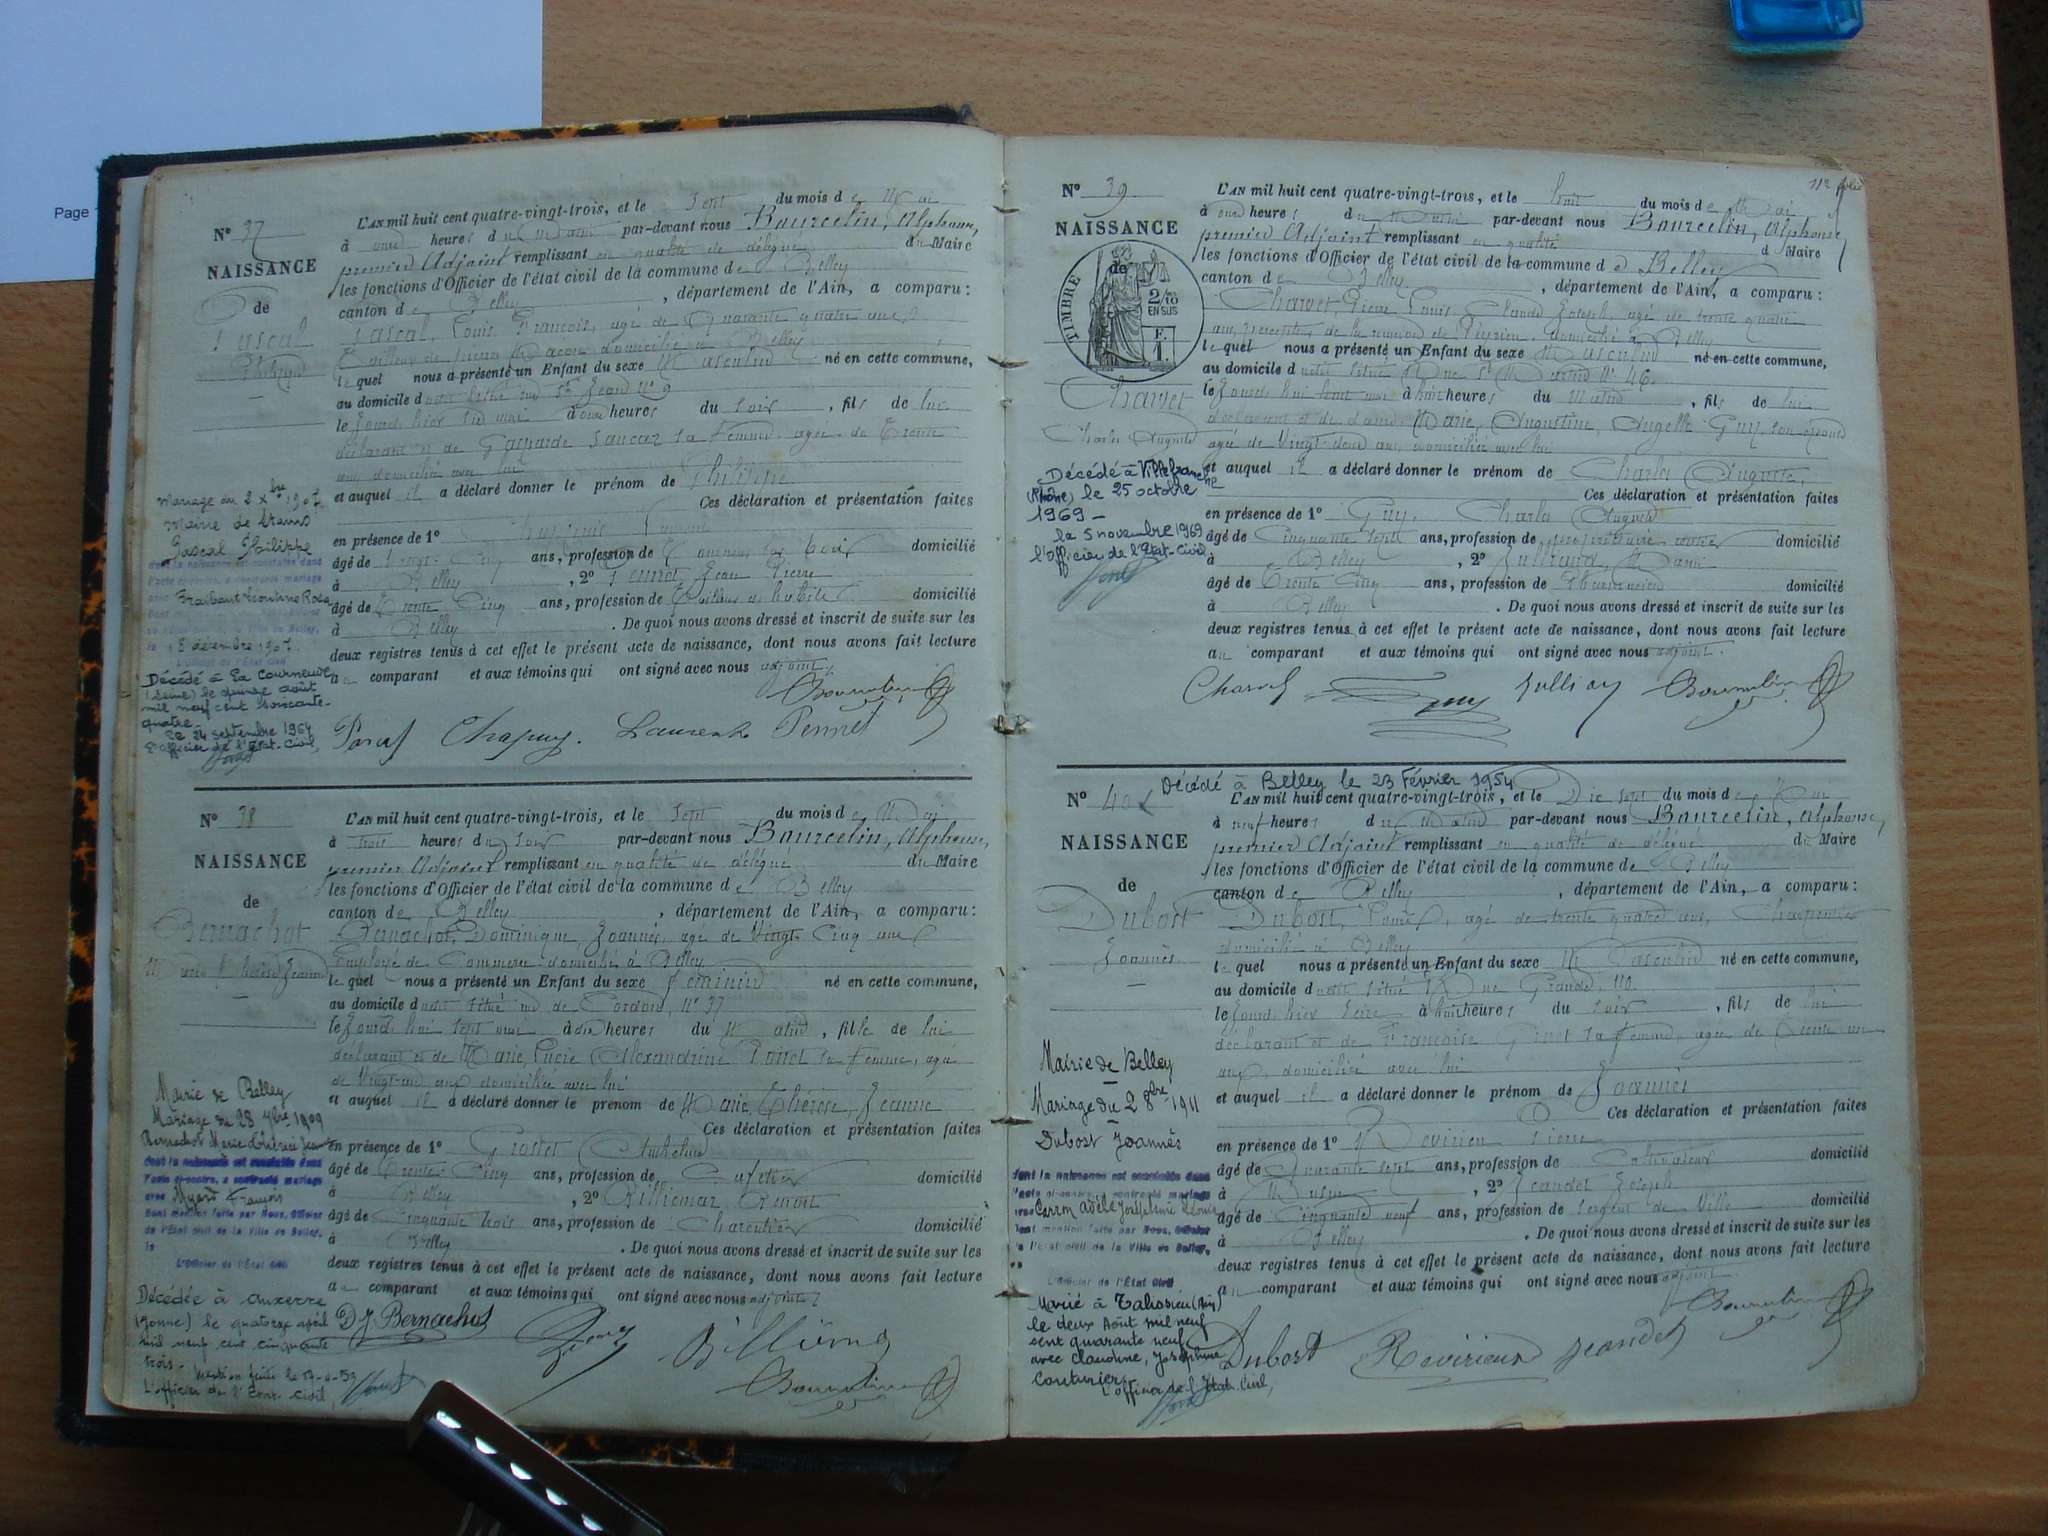 Page
N° 37
NAISSANCE
de
Pascal
Philippe
L'AN mil huit cent quatre-vingt-trois, et le Sept du mois de Mai
à onze heures du matin par-devant nous Bourcelin, Alphonse,
premier Adjoint remplissant en qualité de délégué du Maire
les fonctions d'Officier de l'état civil de la commune de Belley
canton de Belley, département de l'Ain, a comparu:
Pascal, Louis François, agé de Quarante quatre ans,
Tailleur de pierres domicilié à Belley
lequel nous a présenté un Enfant du sexe Masculin né en cette commune,
au domicile situé rue St Jean n° 9
le Jourd'hier six mai à onze heures du soir, fils de lui
déclarant et de sa femme, agée de Trente
ans, domiciliée avec lui
et auquel il a déclaré donner le prénom de Philippe
Ces déclaration et présentation faites
en présence de 1°
âgé de Vingt-Cinq ans, profession de Tourneur sur bois domicilié
à Belley, 2° Pennet Jean Pierre
âgé de Trente Cinq ans, profession de Tailleur d'habits domicilié
à Belley. De quoi nous avons dressé et inscrit de suite sur les
deux registres tenus à cet effet le présent acte de naissance, dont nous avons fait lecture
au comparant et aux témoins qui ont signé avec nous adjoint.
Mariage du 2 Xbre 1907
Mairie de Stains
Pascal Philippe
dont la naissance est constatée dans
l'acte ci-contre, a contracté mariage
avec
8 décembre 1907
L'Officier de l'État Civil
Décédé à La Courneuve
(Seine) le quinze août
mil neuf cent soixante-
quatre
Le 24 septembre 1964
L'officier de l'Etat-Civil,
Pascal Chapuy Laurent Pennet
N° 38
NAISSANCE
de
Bernachot
Marie Thérèse Jeanne
L'AN mil huit cent quatre-vingt-trois, et le Sept du mois de Mai
à trois heures du soir par-devant nous Bourcelin, Alphonse,
premier Adjoint remplissant en qualité de délégué du Maire
les fonctions d'Officier de l'état civil de la commune de Belley
canton de Belley, département de l'Ain, a comparu:
Bernachot, Dominique, Joannès, agé de Vingt Cinq ans
Employé de Commerce domicilié à Belley
lequel nous a présenté un Enfant du sexe Féminin né en cette commune,
au domicile situé rue de n° 37
le Jourd'hui sept mai à dix heures du Matin, fille de lui
déclarant et de Marie, Lucie Alexandrine sa femme, agée
de Vingt ans domiciliée avec lui
et auquel il a déclaré donner le prénom de Marie, Thérèse, Jeanne
Ces déclaration et présentation faites
en présence de 1° Anthelme
âgé de Trente-Cinq ans, profession de Cafetier domicilié
à Belley, 2° Billiemaz, Benoit
âgé de Cinquante trois ans, profession de Charcutier domicilié
à Belley. De quoi nous avons dressé et inscrit de suite sur les
deux registres tenus à cet effet le présent acte de naissance, dont nous avons fait lecture
au comparant et aux témoins qui ont signé avec nous adjoint
Mairie de Belley
Mariage du 28 1909
Bernachot Marie Thérèse Jeanne
dont la naissance est constatée dans
l'acte ci-contre, a contracté mariage
avec Myard François
Dont mention faite par Nous, Officier
de l'État Civil de la Ville de Belley,
le
L'Officier de l'État Civil
Décédée à Auxerre
(Yonne) le quatorze avril
mil neuf cent cinquante
trois.
Mention faite le
L'officier de l'Etat civil,
D J Bernachot
N° 39
NAISSANCE
de
TIMBRE
2/10
EN SUS
Charvet
Charles Auguste
112
L'AN mil huit cent quatre-vingt-trois, et le huit du mois de Mai
à onze heures du Matin par-devant nous Bourcelin, Alphonse,
premier Adjoint remplissant en qualité d Maire
les fonctions d'Officier de l'état civil de la commune de Belley
canton de Belley, département de l'Ain, a comparu:
Charvet, Pierre Louis Claude Joseph, agé de trente quatre
ans, percepteur de la réunion de Peyrieu, domicilié à Belley
lequel nous a présenté un Enfant du sexe Masculin né en cette commune,
au domicile situé Rue St Martin n° 46
le Jourd'hui huit mai à huit heures du Matin, fils de lui
déclarant et de dame Marie, Augustine, Angèle Guy, son épouse
agée de Vingt ans, domiciliée avec lui
et auquel il a déclaré donner le prénom de Charles Auguste,
Ces déclaration et présentation faites
en présence de 1° Guy, Charles Auguste
âgé de Cinquante sept ans, profession de propriétaire rentier domicilié
à Belley, 2°
âgé de Trente Cinq ans, profession de Pharmacien domicilié
à Belley. De quoi nous avons dressé et inscrit de suite sur les
deux registres tenus à cet effet le présent acte de naissance, dont nous avons fait lecture
au comparant et aux témoins qui ont signé avec nous adjoint.
Décédé à Villefranche
(Rhône) le 25 octobre
1969 -
le 5 novembre 1969
l'officier de l'Etat-Civil
Charvet Guy
N° 40
NAISSANCE
de
Dubost
Joannès
Décédé à Belley le 23 Février 1954
L'AN mil huit cent quatre-vingt-trois, et le Dix sept du mois de Mai
à neuf heures du Matin par-devant nous Bourcelin, Alphonse,
premier Adjoint remplissant en qualité de délégué du Maire
les fonctions d'Officier de l'état civil de la commune de Belley
canton de Belley, département de l'Ain, a comparu:
Dubost, Louis, agé de trente quatre ans, Charpentier
domicilié à Belley
lequel nous a présenté un Enfant du sexe Masculin né en cette commune,
au domicile situé Rue Grande, 110
le Jourd'hier Seize à huit heures du soir, fils de lui
déclarant et de Françoise sa femme, agée de Trente un
ans, domiciliée avec lui
et auquel il a déclaré donner le prénom de Joannès
Ces déclaration et présentation faites
en présence de 1° Revirieu Pierre
âgé de Quarante sept ans, profession de Cultivateur domicilié
à, 2° Jeandet Joseph
âgé de Cinquante neuf ans, profession de Sergent de Ville domicilié
à Belley. De quoi nous avons dressé et inscrit de suite sur les
deux registres tenus à cet effet le présent acte de naissance, dont nous avons fait lecture
au comparant et aux témoins qui ont signé avec nous adjoint
Mairie de Belley
Mariage du 2 8bre 1911
Dubost Joannès
dont la naissance est constatée dans
l'acte ci-contre, a contracté mariage
avec Adèle Joséphine
Dont mention faite par Nous, Officier
de l'État Civil de la Ville de Belley,
L'Officier de l'État Civil
Marié à Talissieu (Ain)
le deux Août mil neuf
cent quarante neuf
avec Claudine, Joséphine
Couturier
L'officier de l'Etat-Civil,
Dubost Revirieux Jeandet